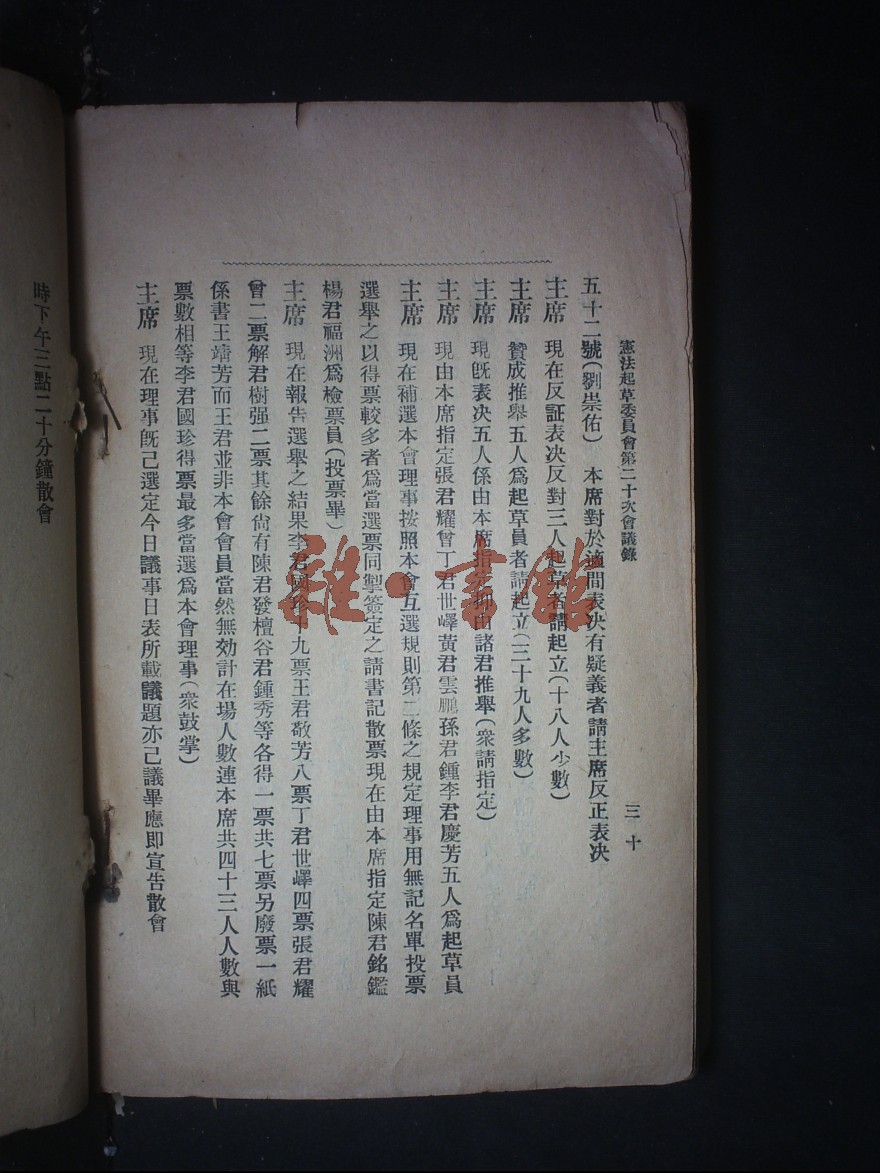 憲法起草委員會第二十次會議錄
三十
五十二號(劉崇佑) 本席對於適間表决有疑義者請主席反正表决
主席 現在反証表决反對三人起草者請起立(十八人少數)
主席 贊成推舉五人爲起草員者請起立(二十九人多數)
主席 現旣表决五人係由本席指定抑由諸君推舉(衆請指定)
主席 現由本席指定張君耀曾丁君世嶧黃君雲鵬孫君鍾李君慶芳五人爲起草員
主席 現在補選本會理事按照本會互選規則第二條之規定理事用無記名單投票
選舉之以得票較多者爲當選票同掣簽定之請書記散票現在由本席指定陳君銘鑑
楊君福洲爲檢票員(投票畢)
主席 現在報告選舉之結果李君國珍十九票王君敬芳八票丁君世嶧四票張君耀
曾二票解君樹强二票其餘尙有陳君發檀谷君鍾秀等各得一票共七票另廢票一紙
係書王靖芳而王君並非本會會員當然無効計在場人數連本席共四十三人人數與
票數相等李君國珍得票最多當選爲本會理事(衆鼓掌)
主席 現在理事旣己選定今日議事日表所載議題亦己議畢應即宣告散會
時下午三點二十分鐘散會
雜·書館